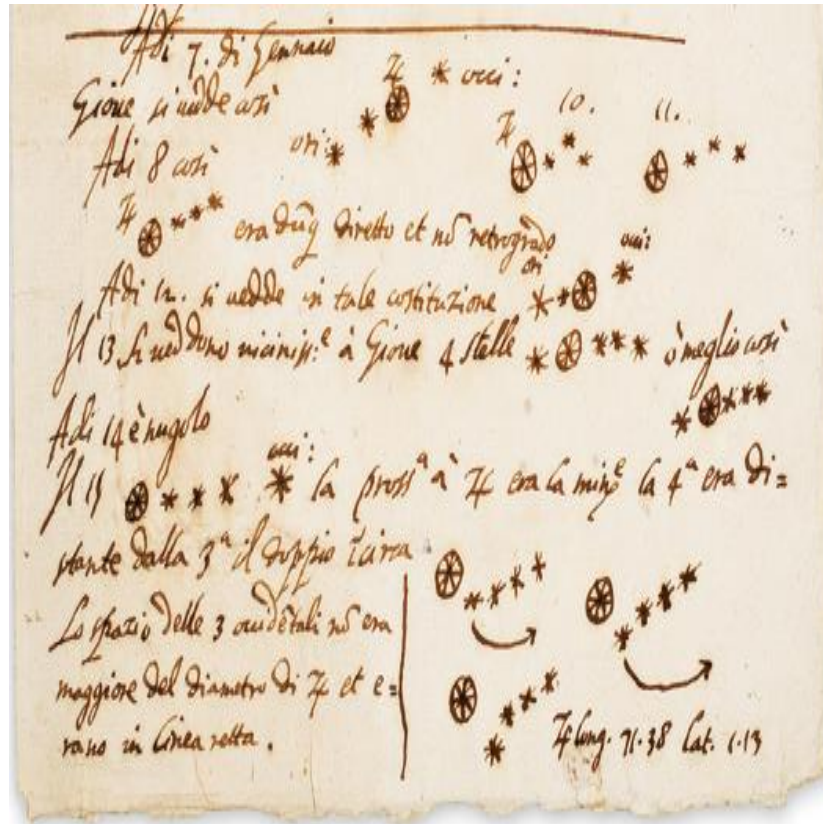 Adi 7. di Gennaio
Gione si vedde così
♃ * occi:
ori: *
Adi 8 così
♃
10.
11.
♃
era dūq diretto et nō retrogrado
Adi 12. si vedde in tale costituzione
ori
occi:
Il 13 si veddono viciniss:ᵉ à Giove 4 stelle
ò meglio così
Adi 14 è nugolo
Il 15
occi:
la prossᵃ à ♃ era la minᵉ la 4ᵃ era di=
stante dalla 3ᵃ il doppio circa
Lo spazio delle 3 occidētali nō era
maggiore del diametro di ♃ et e=
rano in linea retta.
♃ long. 71.38 lat. 1.13